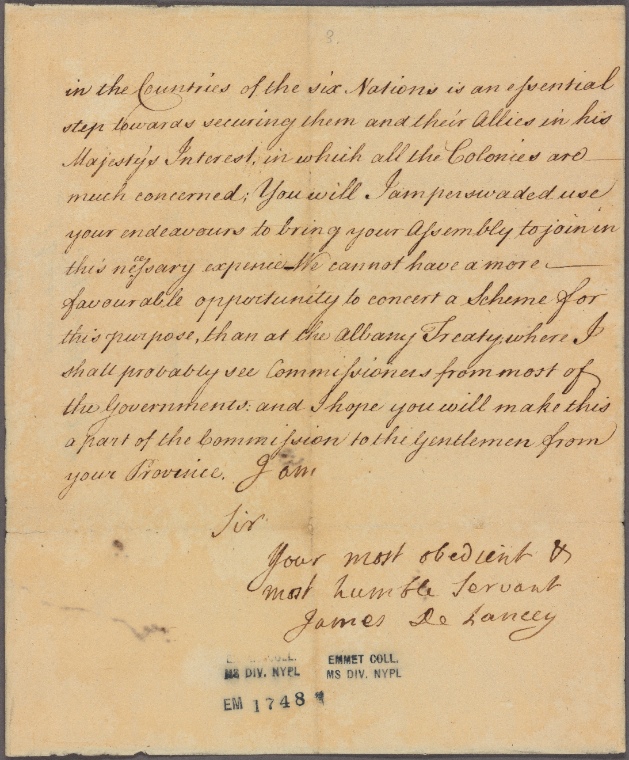 3.
in the Countries of the six Nations is an essential
step towards securing them and their Allies in his
Majesty's Interest, in which all the Colonies are
much concerned; You will I am perswaded use
your endeavours to bring your Assembly to join in
this necessary expence We cannot have a more
favourable opportunity to concert a Scheme for
this purpose, than at the Albany Treaty where I
shall probably see Commissioners from most of
the Governments: and I hope you will make this
a part of the Commission to the Gentlemen from
your Province. I am
Sir
Your most obedient &
most humble Servant
James De Lancey
EMMET COLL.
MS DIV. NYPL
MS DIV. NYPL
EM 1748